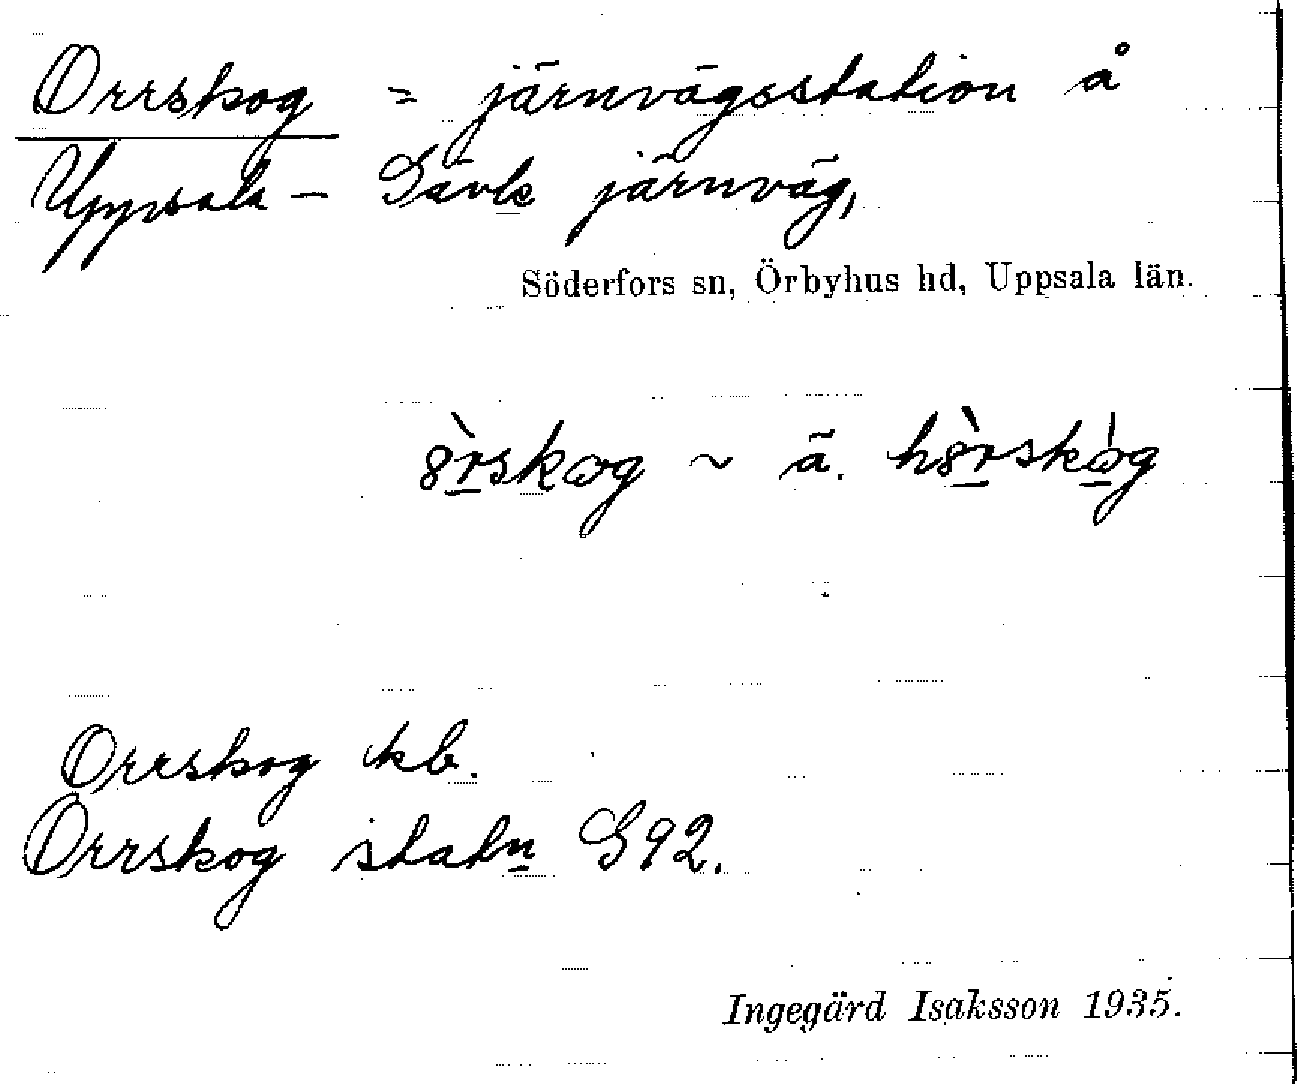 Orrskog = järnvägsstation å
Uppsala - Gävle järnväg,
Söderfors sn, Örbyhus hd, Uppsala län.
ä.
Orrskog kb.
Orrskog statn G92.
Ingegärd Isaksson 1935.